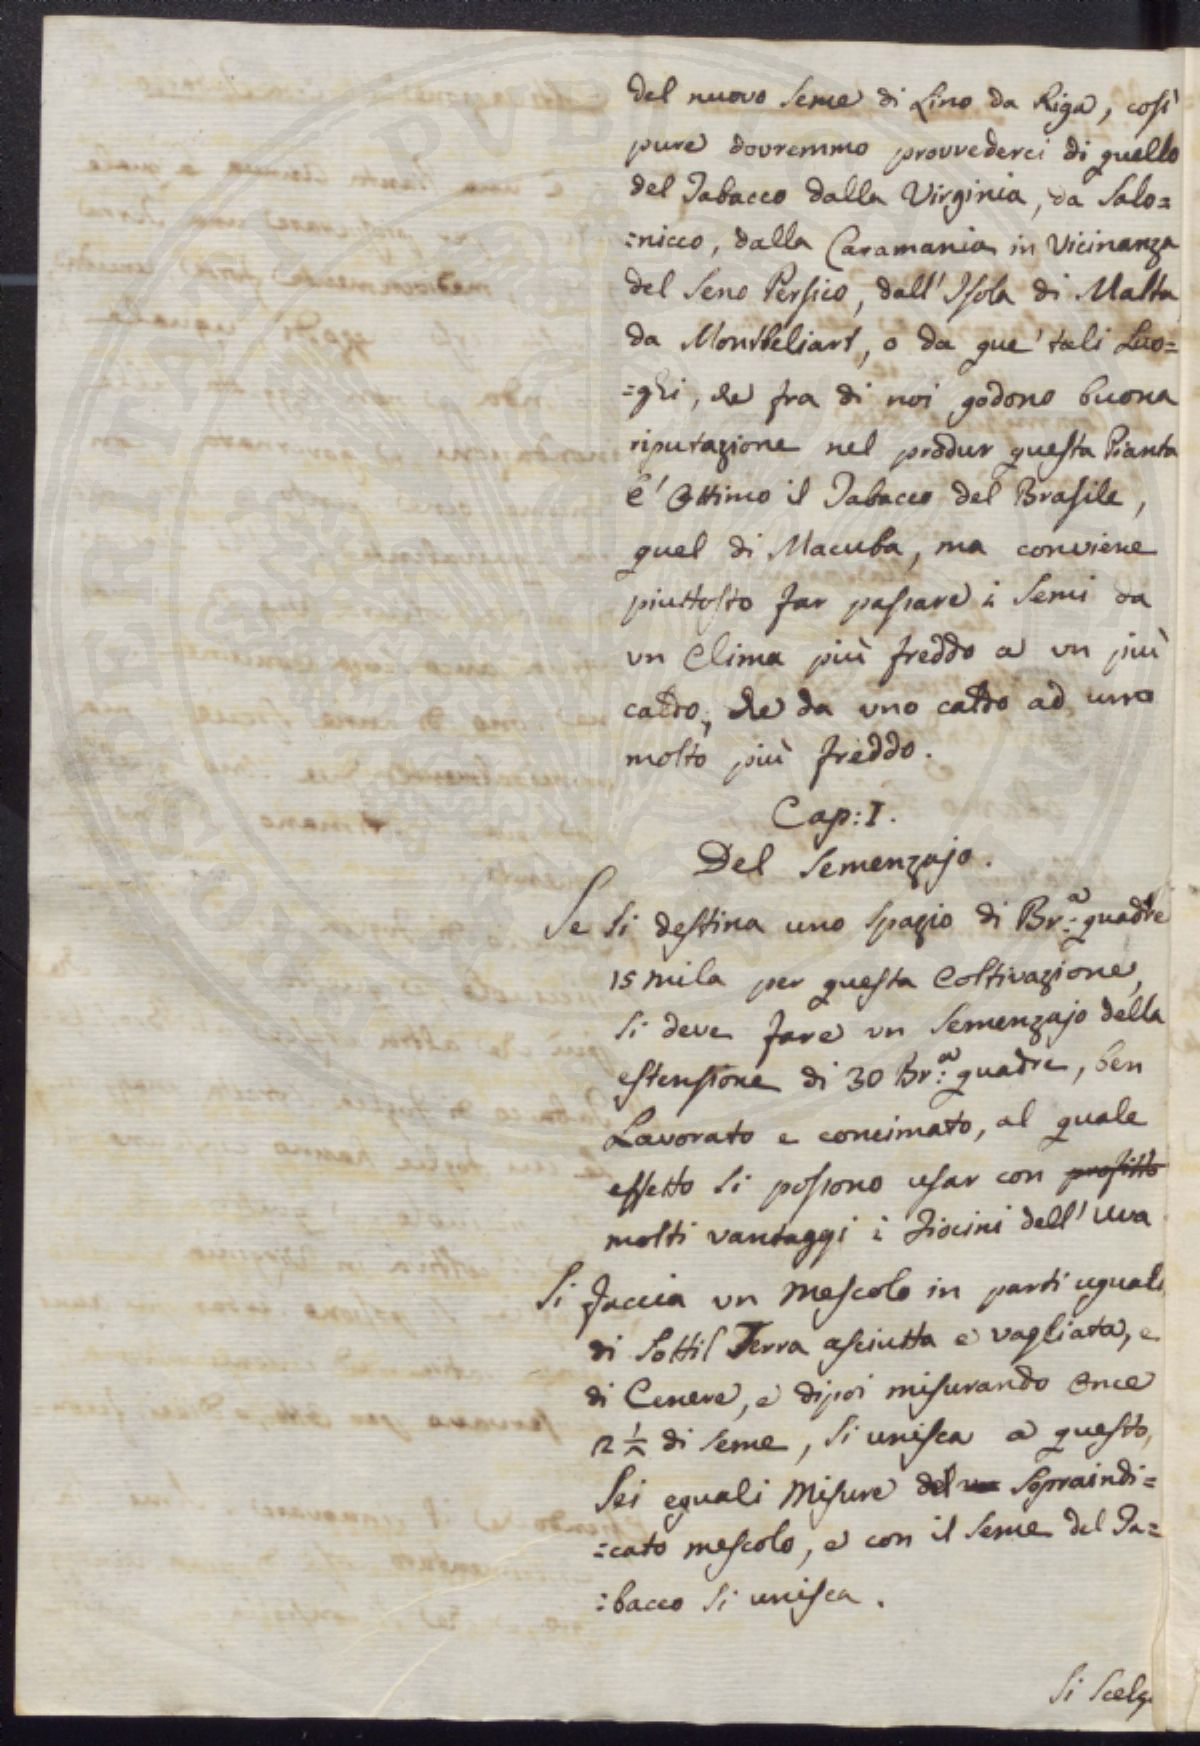 del nuovo seme di Lino da Riga, così
pure dovremmo provvederci di quello
del Tabacco dalla Virginia, da Salo=
=nicco, dalla Caramania in Vicinanza
del Seno Persico, dall'Isola di Malta
da Montbeliart, o da que' tali Luo=
=ghi, che fra di noi godono buona
riputazione nel produr questa Pianta
È Ottimo il Tabacco del Brasile,
quel di Macuba, ma conviene
piuttosto far passare i Semi da
un Clima più freddo a un più
caldo, che da uno caldo ad uno
molto più freddo.
Cap: I.
Del Semenzajo.
Se si destina uno spazio di Br:ª quadre
15 mila per questa Coltivazione,
si deve fare un Semenzajo della
estensione di 30 Br:ª quadre, ben
Lavorato e concimato, al quale
effetto si possono usar con profitto
molti vantaggi i Fiocini dell'Uva
Si faccia un Mescolo in parti uguali
di Sottil Terra asciutta e vagliata, e
di Cenere, e dipoi misurando Once
2 ½ di seme, si unisca a questo,
Sei eguali Misure del Sopraindi=
=cato mescolo, e con il seme del Ta=
=bacco si unisca.
Si Scelg